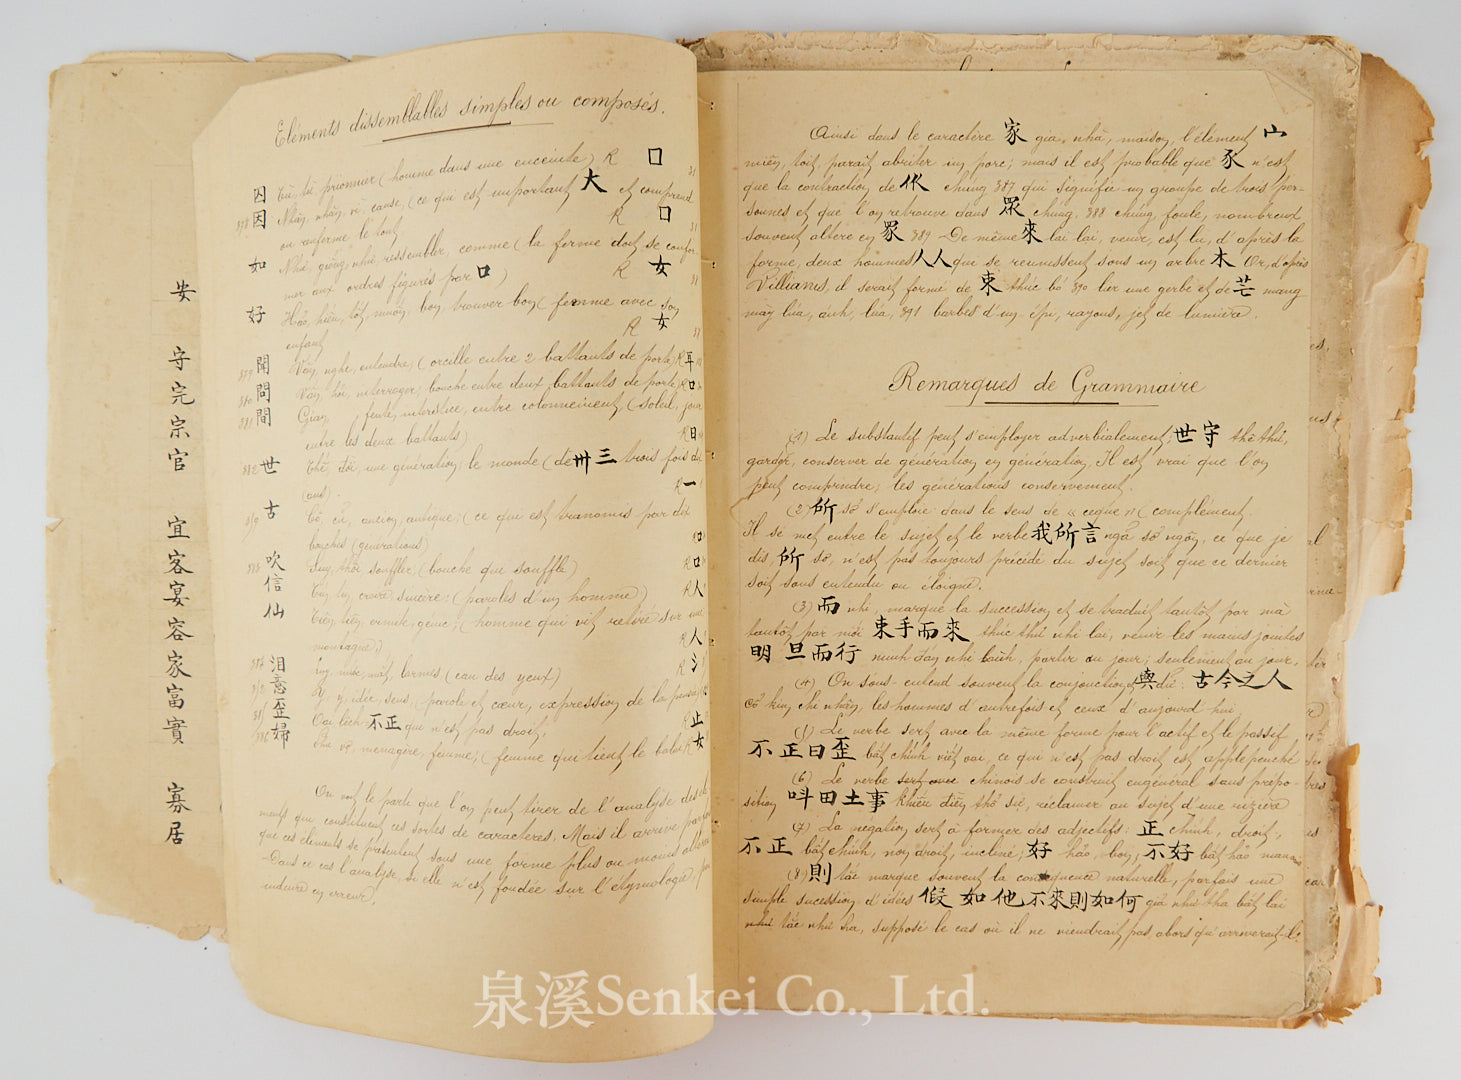 安
守
完
宗
官
宜
客
宴
容
家
富
實
寡
居
Eléments dissemblables simples ou composés.
囚 Tù, tù, prisonnier (homme dans une enceinte) R 口
378 因 Nhân, nhân, vì, cause, (ce qui est important 大 et comprend
ou renferme le tout R 口
如 Như, giống, như, ressembler, comme (la femme doit se confor
mer aux ordres figurés par 口) R 女
好 Hảo, hiếu, tốt, muốn, bon, trouver bon (femme avec son
enfant R 女
379 聞 Văn, nghe, entendre, (oreille entre 2 battants de porte) R 耳
380 問 Vấn, hỏi, interroger; bouche entre deux battants de porte) R 口
381 間 Gian, fente, interstice, entre colonnement (soleil, jour
entre les deux battants) R 日
382 世 Thế, đời, une génération, le monde (de 卅 三 trois fois dix
ans). R 一
古 Cổ, cũ, ancien, antique, (ce qui est transmis par dix
bouches (générations) 口
383 吹 thổi souffler, (bouche qui souffle) R 口
信 Tín, tin, croire, sincère, (paroles d'un homme) R 人
仙 Tiên, tiên, ermite, génie, (homme qui vit retiré sur une
montagne) R 人
384 泪 nước mắt, larmes (eau des yeux) R 氵
意 Ý, ý, idée, sens, (parole et cœur, expression de la pensée
歪 Oai lệch 不正 que n'est pas droit, R 止
386 婦 Phụ vợ, ménagère, femme, (femme qui tient le balai R 女
On voit le parti que l'on peut tirer de l'analyse des élé
ments qui constituent ces sortes de caractères. Mais il arrive parfois
que ces éléments se présentent sous une forme plus ou moins altérée
Dans ce cas l'analyse si elle n'est fondée sur l'étymologie, peut
induire en erreur.
Ainsi dans le caractère 家 gia, nhà, maison, l'élément 宀
miên, toit, paraît abriter un porc; mais il est probable que 豕 n'est
que la contraction de 㐺 chung 387 qui signifie un groupe de trois per-
sonnes et que l'on retrouve dans 眾 chúng, 388 chúng, foule, nombreux
souvent altéré en 衆 389. De même 來 lai lai, venir, est lu, d'après la
forme, deux hommes 人人 qui se réunissent sous un arbre 木 Or, d'après
Villians, il serait formé de 束 thúc bó 390 lier une gerbe et de 芒 mang
mày lúa, ánh, lúa, 391 barbes d'un épi, rayons, jet de lumière.
Remarques de Grammaire
(1) Le substantif peut s'employer adverbialement; 世守 thế thủ,
garder, conserver de génération en génération, Il est vrai que l'on
peut comprendre, les générations conservement.
(2) 所 sở s'emploie dans le sens de « ceque » (complément.
Il se met entre le sujet et le verbe 我所言 ngã sở ngôn, ce que je
dis, 所 sở, n'est pas toujours précédé du sujet soit que ce dernier
soit sous entendu ou éloigné.
(3) 而 nhi, marque la succession et se traduit tantôt par mà
tantôt par mới 束手而來 thúc thủ nhi lai, venir les mains jointes
明旦而行 minh đán nhi hành, partir au jour; seulement au jour.
(4) On sous-entend souvent la conjonction 與 dữ: 古今之人
cổ kim chi nhân, les hommes d'autrefois et ceux d'aujourd'hui,
(5) Le verbe sert avec la même forme pour l'actif et le passif,
不正曰歪 bất chính viết oai, ce qui n'est pas droit est appelé penché
(6) Le verbe sert avec chinois se construit en général sans prépo-
sition 呌田土事 khiếu điền thổ sự, réclamer au sujet d'une rizière
(7) La negation sert à former des adjectifs: 正 chính, droit,
不正 bất chính, non droit, incliné; 好 hảo, bon; 不好 bất hảo mauvais
(8) 則 tắc marque souvent la conséquence naturelle, parfois une
simple sucession d'idées 假如他不來則如何 giả như tha bất lai
như tắc như hà, supposé le cas où il ne viendrait pas, alors qu'arriverait-il.
泉溪Senkei Co., Ltd.